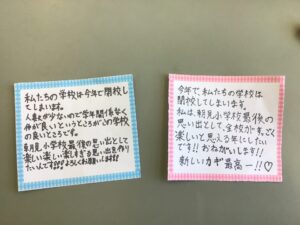 私たちの学校は今年で閉校し
てしまいます。
人数が少ないので学年関係なく
仲が良いというところがこの学校
の良いところです。
朝見小学校最後の思い出として
楽しい楽しい楽しすぎる思い出を作り
たいんです!!!よろしくお願いします!!
今年で、私たちの学校は
閉校してしまいます。
私は、朝見小学校最後の
思い出として、全校がすっごく
楽しいと思える年にしたい
です!!おねがいします!!
新しいカギ最高ー!!♡